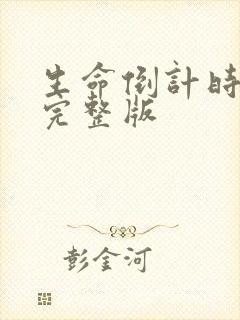 生命倒計時
完整版
彭金河